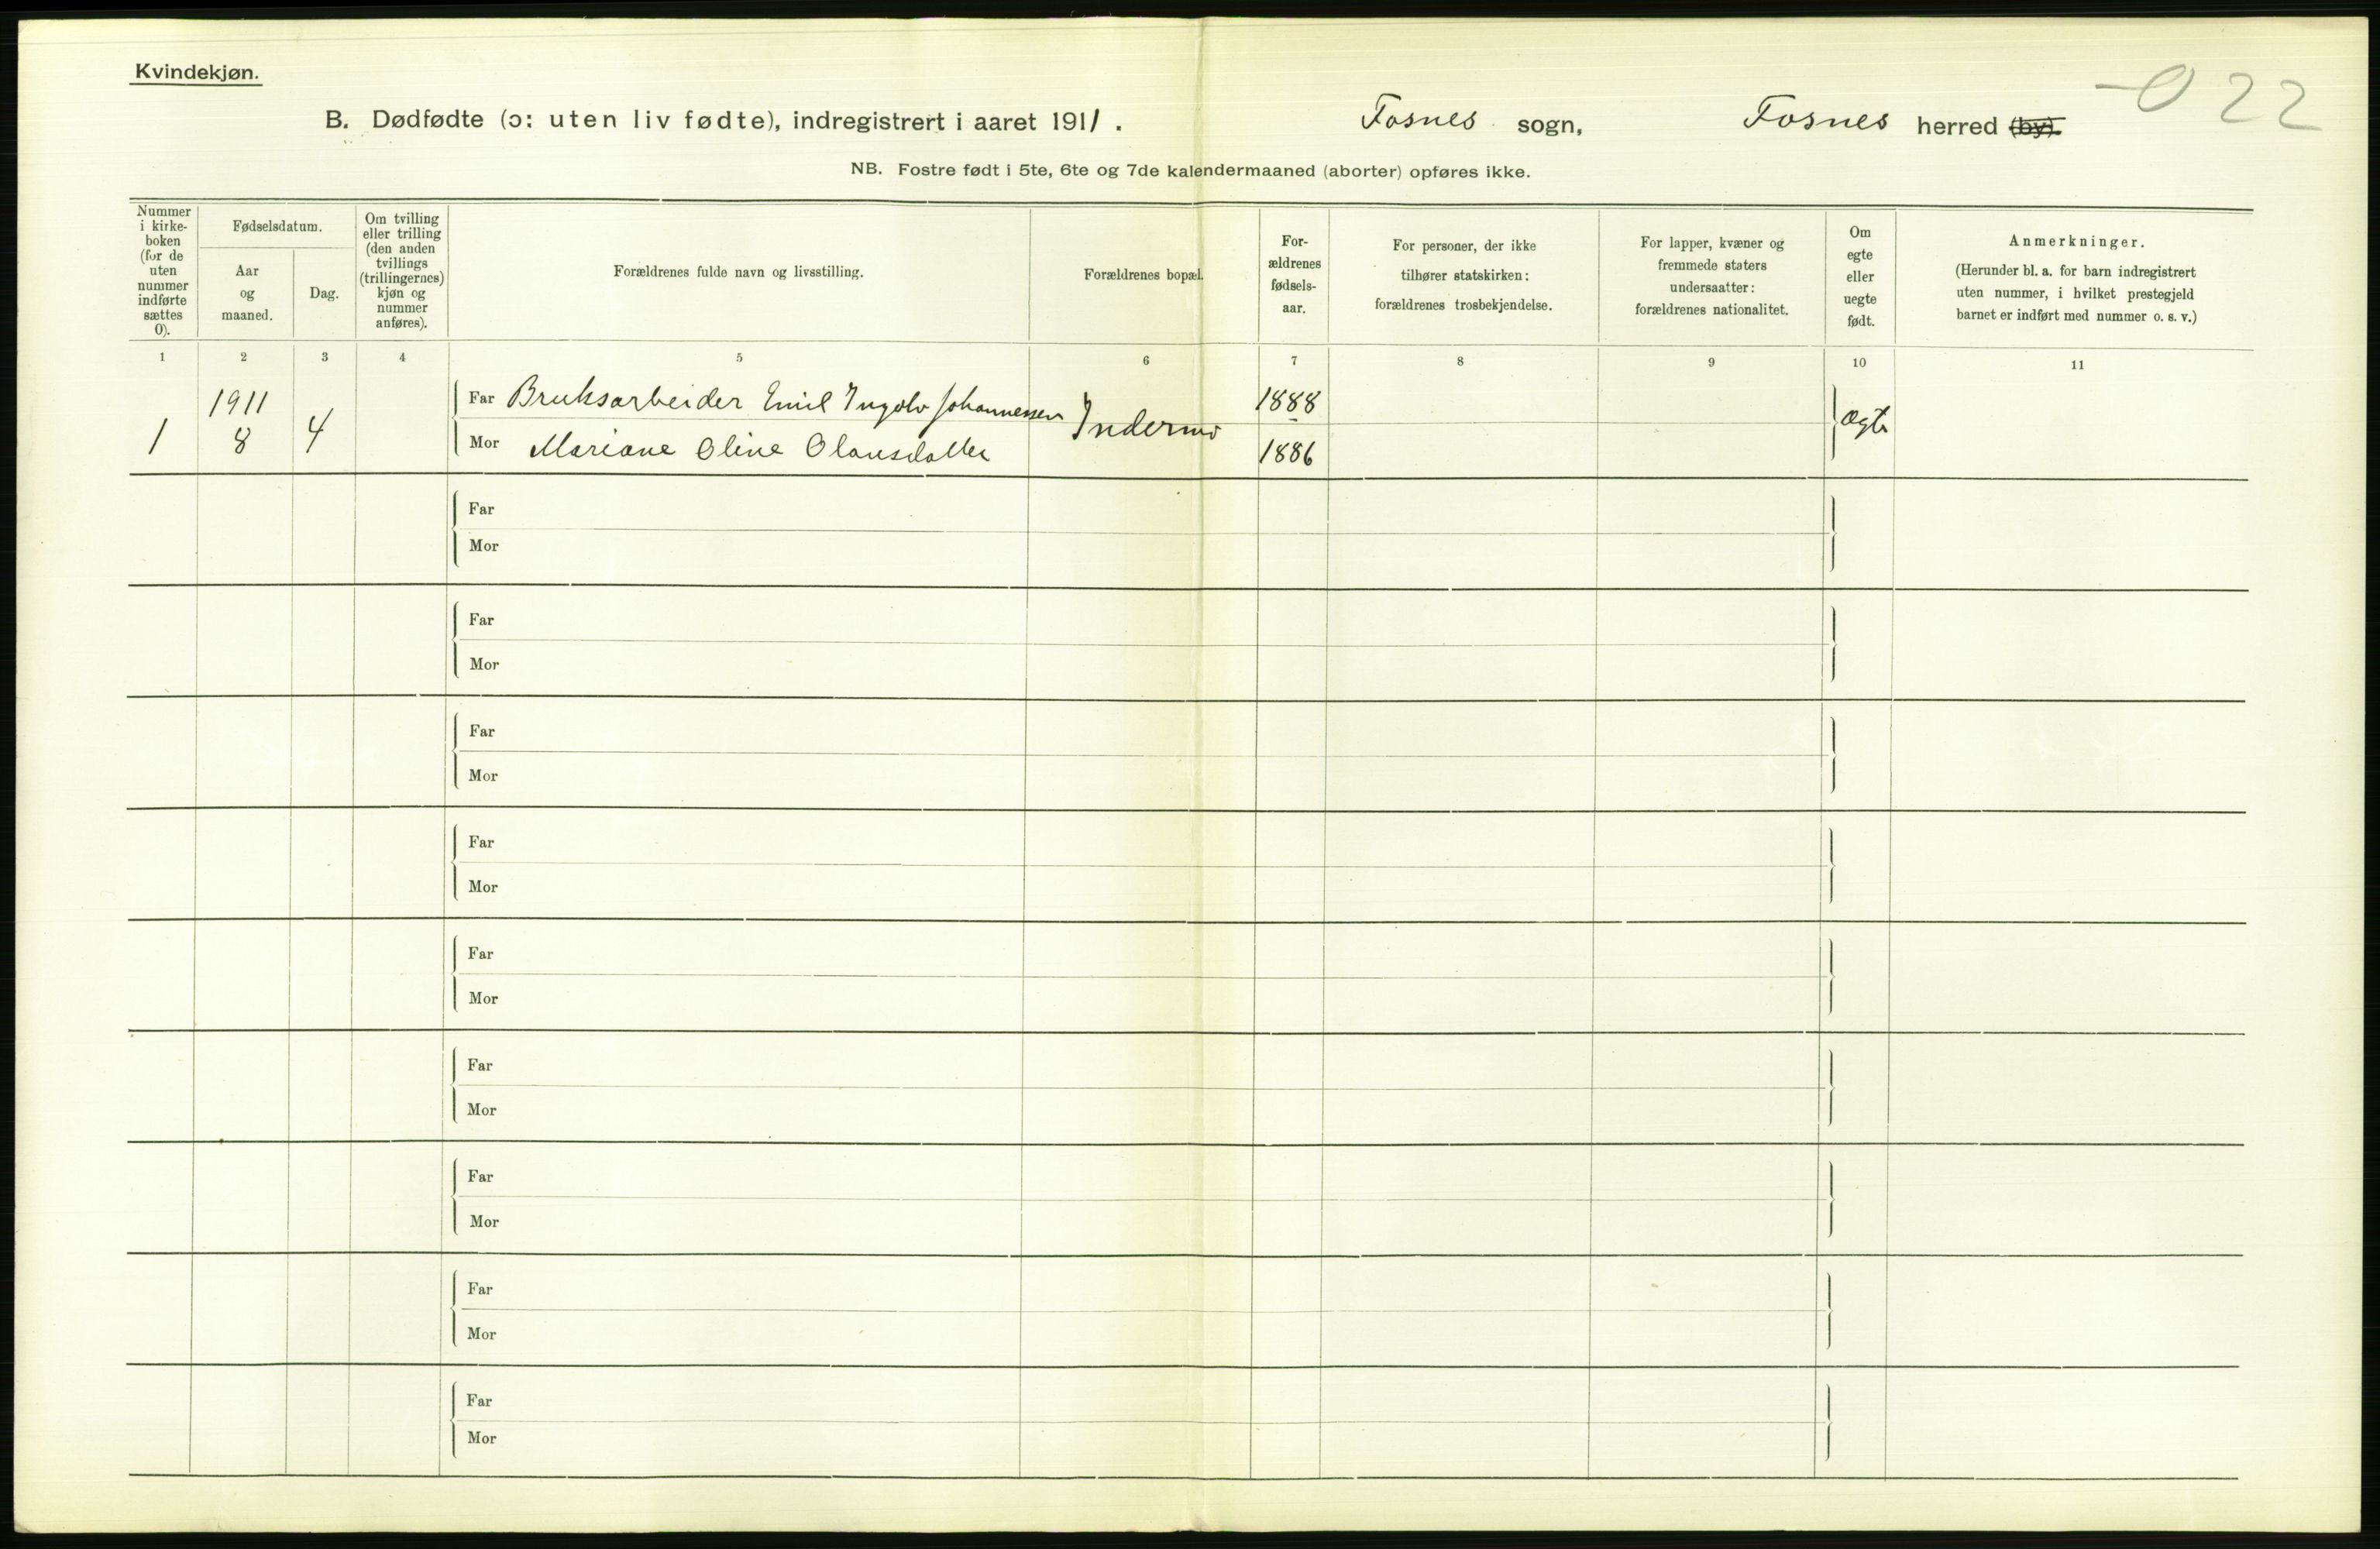 Kvindekjøn.
B. Dødfødte (ɔ: uten liv fødte), indregistrert i aaret 1911. Fosnes sogn, Fosnes herred (by).
-0 22
NB. Fostre født i 5te, 6te og 7de kalendermaaned (aborter) opføres ikke.
Nummer
i kirke-
boken
(for de
uten
nummer
indførte
sættes
0).
Fødselsdatum.
Aar
og
maaned.
Dag.
Om tvilling
eller trilling
(den anden
tvillings
(trillingernes)
kjøn og
nummer
anføres).
Forældrenes fulde navn og livsstilling.
Forældrenes bopæl.
For-
ældrenes
fødsels-
aar.
For personer, der ikke
tilhører statskirken:
forældrenes trosbekjendelse.
For lapper, kvæner og
fremmede staters
undersaatter:
forældrenes nationalitet.
Om
egte
eller
uegte
født.
Anmerkninger.
(Herunder bl. a. for barn indregistrert
uten nummer, i hvilket prestegjeld
barnet er indført med nummer o. s. v.)
1 2 3 4 5 6 7 8 9 10 11
1911
1 8 4
Far Bruksarbeider Emil Ingolv Johannessen
Mor Mariane Oline Olausdatter
Indermo
1888
1886
Ægte
Far
Mor
Far
Mor
Far
Mor
Far
Mor
Far
Mor
Far
Mor
Far
Mor
Far
Mor
Far
Mor